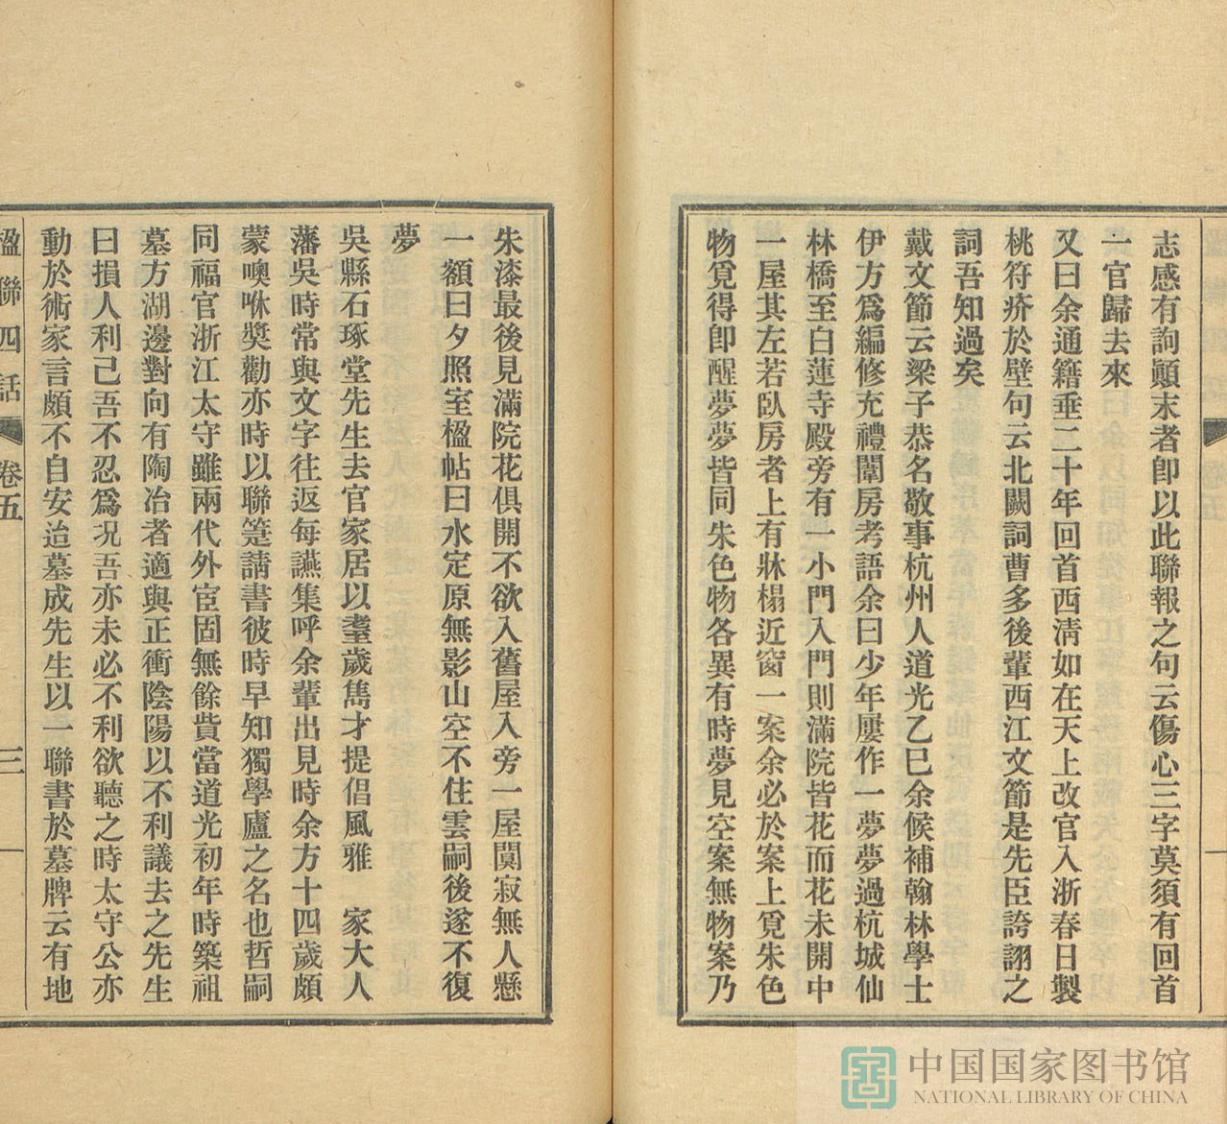 志感有詢顛末者卽以此聯報之句云傷心三字莫須有回首
一官歸去來
又曰余通籍垂二十年回首西淸如在天上改官入浙春日製
桃符疥於壁句云北闕詞曹多後輩西江文節是先臣誇詡之
詞吾知過矣
戴文節云梁子恭名敬事杭州人道光乙巳余候補翰林學士
伊方爲編修充禮闈房考語余曰少年屢作一夢夢過杭城仙
林橋至白蓮寺殿旁有一小門入門則滿院皆花而花未開中
一屋其左若臥房者上有牀榻近窗一案余必於案上覓朱色
物覓得卽醒夢夢皆同朱色物各異有時夢見空案無物案乃
朱漆最後見滿院花俱開不欲入舊屋入旁一屋闃寂無人懸
一額曰夕照室楹帖曰水定原無影山空不住雲嗣後遂不復
夢
吳縣石琢堂先生去官家居以耋歲雋才提倡風雅　家大人
藩吳時常與文字往返每讌集呼余輩出見時余方十四歲頗
蒙噢咻獎勸亦時以聯箑請書彼時早知獨學廬之名也哲嗣
同福官浙江太守雖兩代外宦固無餘貲當道光初年時築祖
墓方湖邊對向有陶冶者適與正衝陰陽以不利議去之先生
曰損人利己吾不忍爲況吾亦未必不利欲聽之時太守公亦
動於術家言頗不自安迨墓成先生以一聯書於墓牌云有地
楹聯四話 卷五 三
中国国家图书馆
NATIONAL LIBRARY OF CHINA